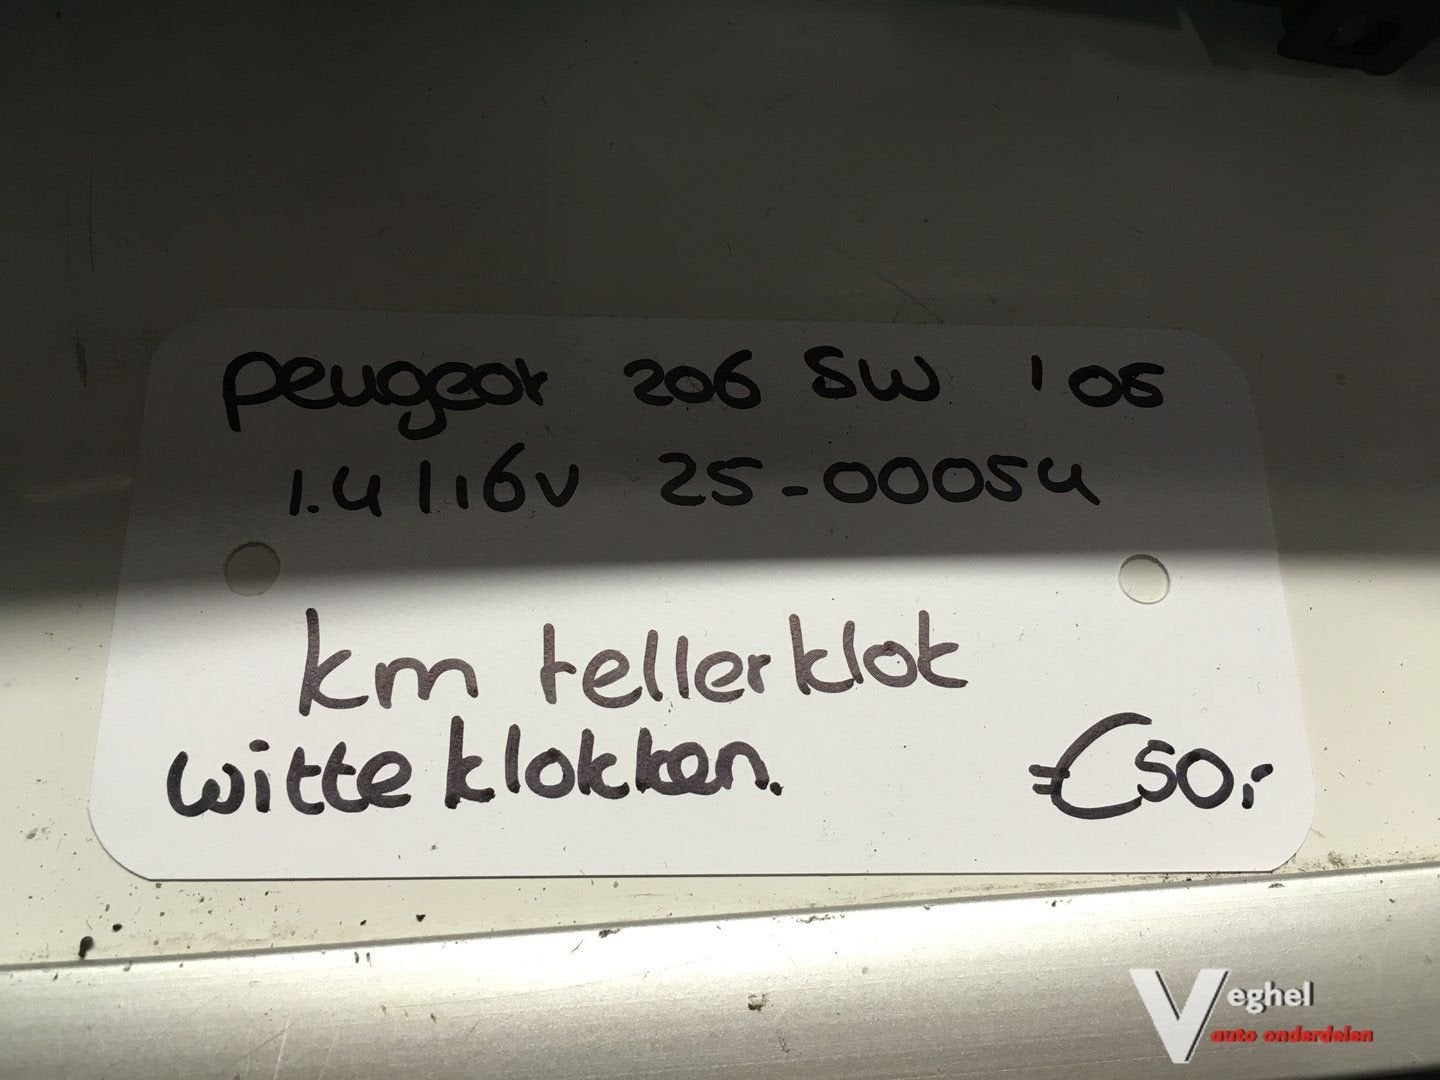 Peugeot 206 SW '05
1.4 l 16v 25-00054
km tellerklok
witte klokken.
€50,-
Veghel
auto onderdelen